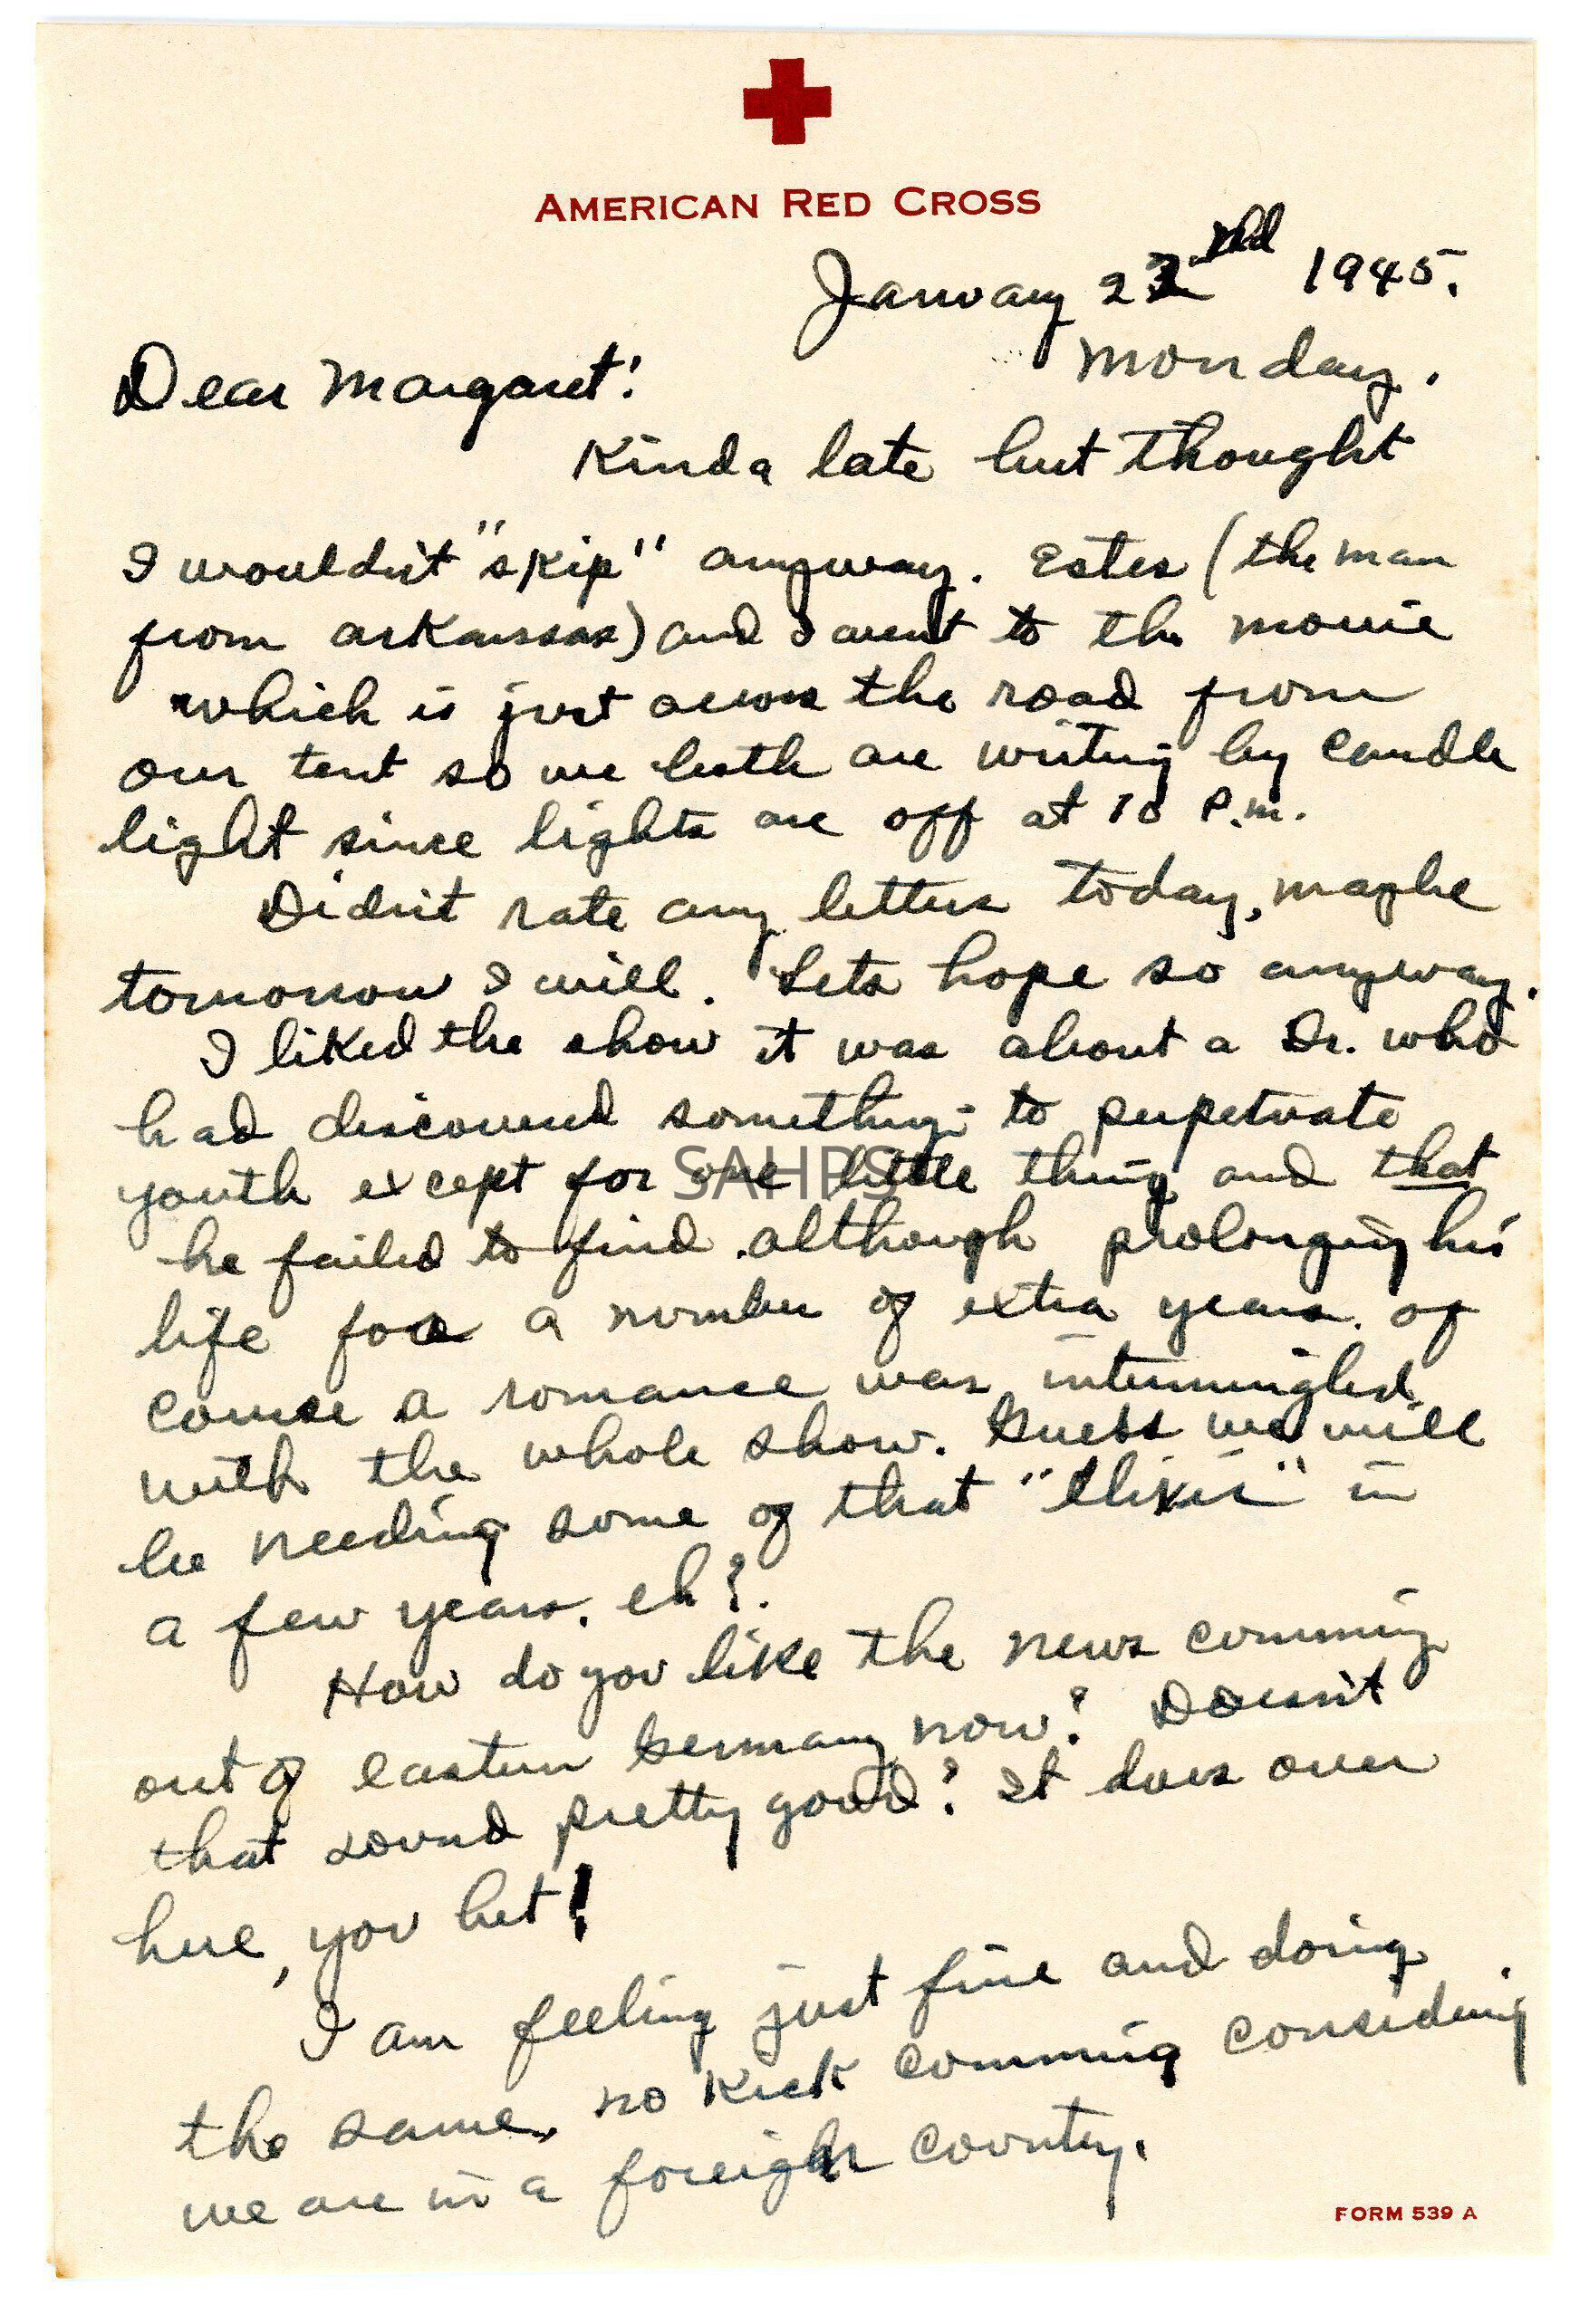 AMERICAN RED CROSS
January 22nd 1945.
Monday.
Dear Margaret:
Kinda late but thought
I wouldn't "skip" anyway. Estes (the man
from arkansas) and I went to the movie
which is just across the road from
our tent so we both are writing by candle
light since lights are off at 10 P.m.
Didn't rate any letters today, maybe
tomorrow I will. Lets hope so anyway.
I liked the show it was about a Dr. who
had discovered something to perpetuate
youth except for one little thing and that
he failed to find although prolonging his
life for a number of extra years. of
course a romance was intermingled
with the whole show. Guess we will
be needing some of that "Elixir" in
a few years. eh?.
How do you like the news comming
out of eastern Germany now? Doesn't
that sound pretty good? It does over
here, you bet!
I am feeling just fine and doing
the same, no kick comming considering
we are in a foreign country.
SAHPS
FORM 539 A